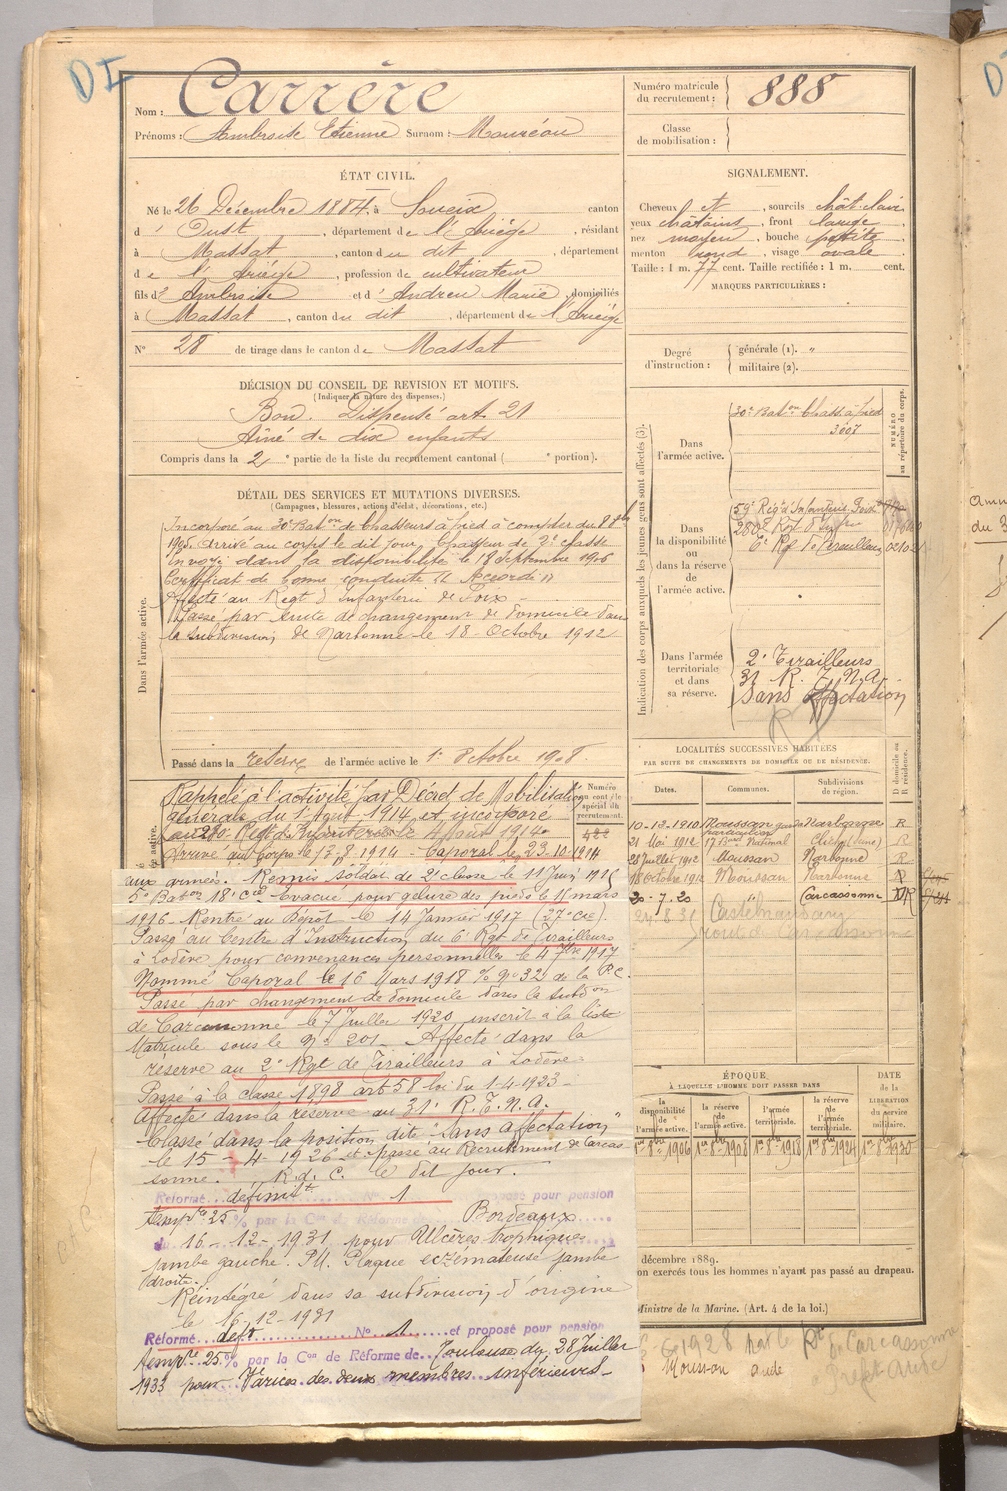 DI
Nom : Carrère
Prénoms : Ambroise Etienne Surnom : Mouréou
Numéro matricule du recrutement : 888
Classe de mobilisation :
ÉTAT CIVIL.
Né le 26 Décembre 1884, à Soueix canton
d' Oust, département de l'Ariège, résidant
à Massat, canton du dit, département
de l'Ariège, profession de cultivateur
fils d' Ambroise et d' Andreu Marie, domiciliés
à Massat, canton du dit, département de l'Ariège
N° 28 de tirage dans le canton de Massat
SIGNALEMENT.
Cheveux et, sourcils chât. clairs
yeux châtains, front large
nez moyen, bouche petite
menton rond, visage ovale
Taille : 1 m. 77 cent. Taille rectifiée : 1 m. cent.
MARQUES PARTICULIÈRES :
Degré d'instruction : générale (1). "
militaire (2).
DÉCISION DU CONSEIL DE REVISION ET MOTIFS.
(Indiquer la nature des dispenses.)
Bon. Dispensé art. 21
Aîné de dix enfants
Compris dans la 2e partie de la liste du recrutement cantonal ( e portion).
DÉTAIL DES SERVICES ET MUTATIONS DIVERSES.
(Campagnes, blessures, actions d'éclat, décorations, etc.)
Dans l'armée active.
Incorporé au 30e Baton de Chasseurs à pied à compter du 8 8bre
1905. Arrivé au corps le dit jour, Chasseur de 2e classe
Envoyé dans la disponibilité le 18 septembre 1906
Certificat de bonne conduite "Accordé"
Affecté au Régt d'Infanterie de Foix
Passé par suite de changement de domicile dans
la subdivision de Narbonne le 18 Octobre 1912
Passé dans la réserve de l'armée active le 1er Octobre 1908.
Indication des corps auxquels les jeunes gens sont affectés (3).
NUMÉRO au répertoire du corps.
Dans l'armée active.
30e Baton Chass. à pied
3007
Dans la disponibilité ou dans la réserve de l'armée active.
59e Régt d'Infanterie Foix
280e Rgt d'Infrie
6e Rgt de Tirailleurs
Dans l'armée territoriale et dans sa réserve.
2e Tirailleurs
31 R. T. N. A.
Sans affectation
LOCALITÉS SUCCESSIVES HABITÉES
PAR SUITE DE CHANGEMENTS DE DOMICILE OU DE RÉSIDENCE.
Dates. Communes. Subdivisions de région. D domicile ou R résidence.
10-12-1910 Moussan Narbonne R
21 Mai 1912 17 Bard National Clichy (Seine) R
28 Juillet 1912 Moussan Narbonne R
18 Octobre 1912 Moussan Narbonne
20-7-20 " Carcassonne DR
24.8.31 Castelnaudary
route de Carcassonne
Numéro au contrôle spécial du recrutement.
482
Rappelé à l'activité par Décret de Mobilisation
générale du 1 Août 1914 et incorporé
au 280 Régt d'Infanterie le 4 Août 1914
Arrivé au Corps le 13-8-1914 - Caporal le 23-10-1914
aux armées. Remis soldat de 2e classe le 11 Juin 1916
5e Baton 18e Cie Evacué pour gelure des pieds le 15 mars
1916 - Rentré au Dépôt le 14 Janvier 1917 (27e Cie).
Passé au Centre d'Instruction du 6e Rgt de Tirailleurs
à Lodève pour convenances personnelles le 4 7bre 1917
Nommé Caporal le 16 Mars 1918 % No 32 de la P.C.
Passé par changement de domicile dans la Subdon
de Carcassonne le 7 Juillet 1920 inscrit à la liste
Matricule sous le No 201 - Affecté dans la
réserve au 2e Rgt de Tirailleurs à Lodève -
Passé à la classe 1898 art 58 loi du 1-4-1923 -
Affecté dans la réserve au 31e R.T.N.A.
Classé dans la position dite "Sans Affectation"
le 15-4-1926 et passé au Recrutement de Carcas
sonne. R.d.C. le dit jour.
Réformé définitt No 1 et proposé pour pension
tempre 25% par la Con de Réforme de Bordeaux
du 16-12-1931 pour Ulcères trophiques
jambe gauche. Pl. Plaque eczémateuse jambe
droite.
Réintégré dans sa subdivision d'origine
le 16-12-1931
Réformé deft No 1 et proposé pour pension
tempre 25% par la Con de Réforme de Toulouse du 28 Juillet
1933 pour Varices des deux membres inférieurs -
ÉPOQUE
À LAQUELLE L'HOMME DOIT PASSER DANS
la disponibilité de l'armée active. la réserve de l'armée active. l'armée territoriale. la réserve de l'armée territoriale. DATE de la LIBÉRATION du service militaire.
1er 8bre 1906 1er 8bre 1908 1er 8bre 1918 1er 8bre 1924 1er 8bre 1930
décembre 1889.
on exercés tous les hommes n'ayant pas passé au drapeau.
Ministre de la Marine. (Art. 4 de la loi.)
1928 par le de Carcassonne
Moussan Aude